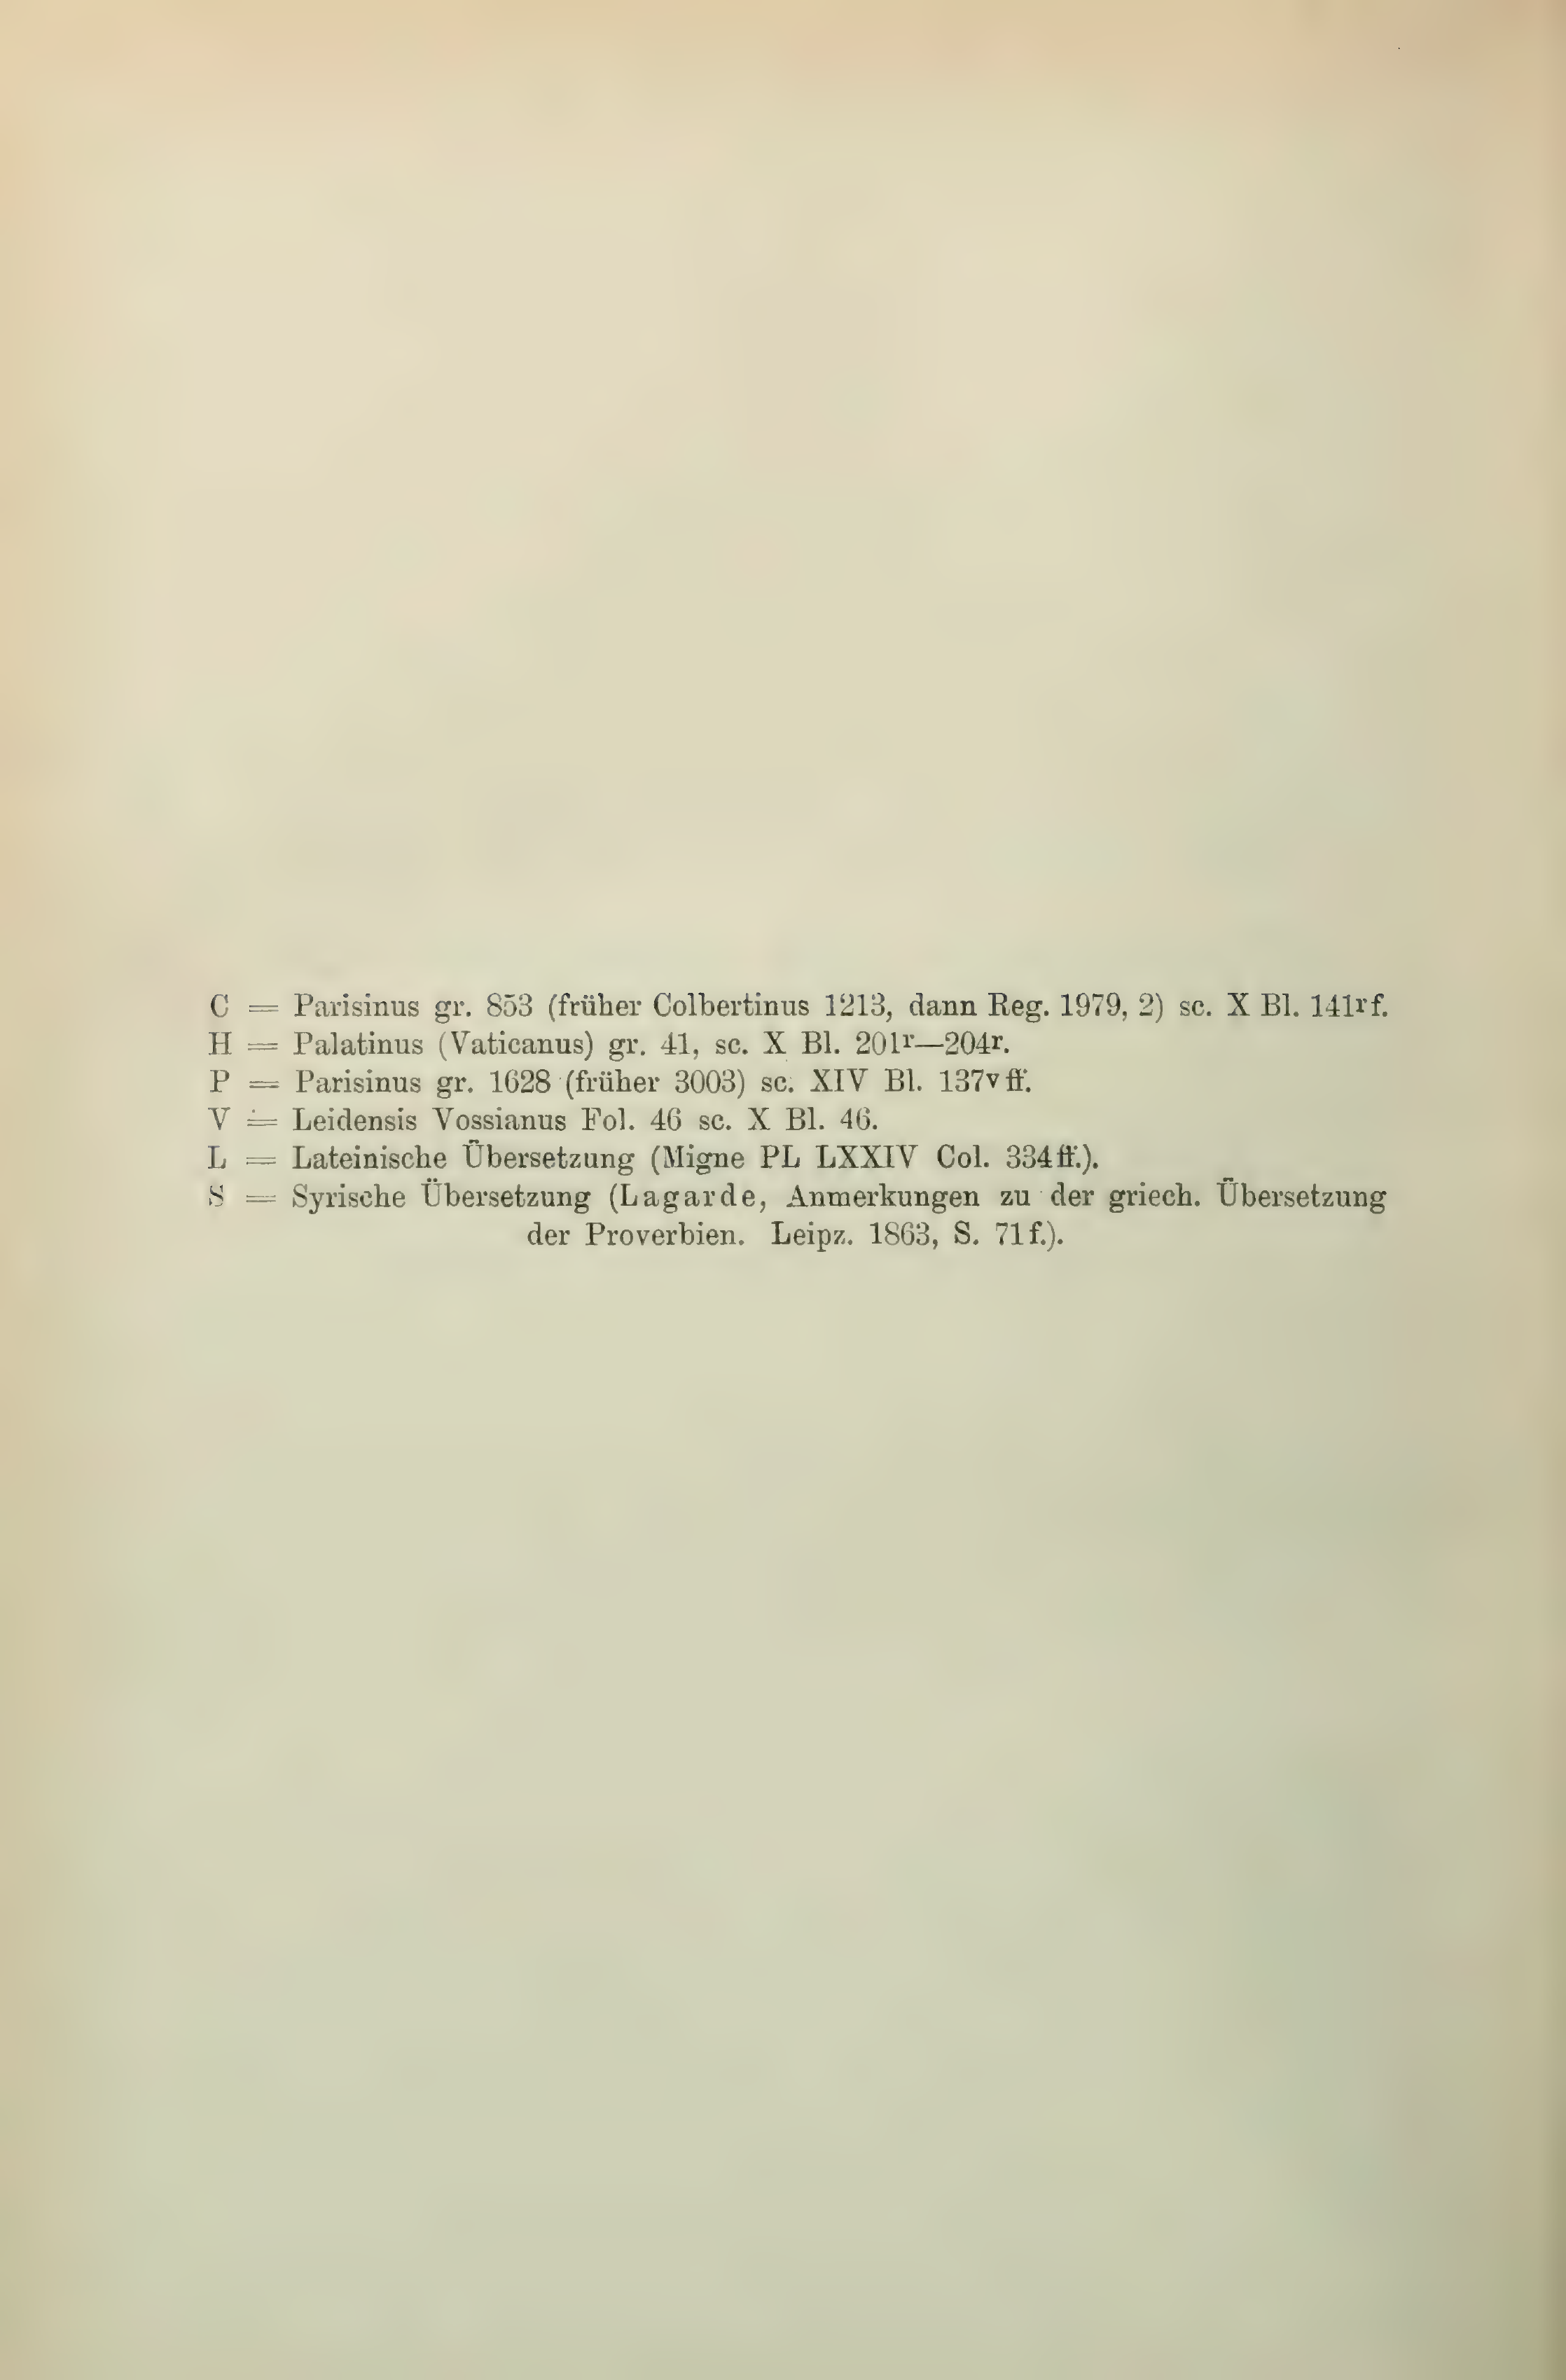 C = Parisinus gr. 853 (früher Colbertinus 1213, dann Reg. 1979, 2) sc. X Bl. 141r f.
H = Palatinus (Vaticanus) gr. 41, sc. X Bl. 201r—204r.
P = Parisinus gr. 1628 (früher 3003) sc. XIV Bl. 137v ff.
V = Leidensis Vossianus Fol. 46 sc. X Bl. 46.
L = Lateinische Übersetzung (Migne PL LXXIV Col. 334 ff.).
S = Syrische Übersetzung (Lagarde, Anmerkungen zu der griech. Übersetzung
der Proverbien. Leipz. 1863, S. 71 f.).